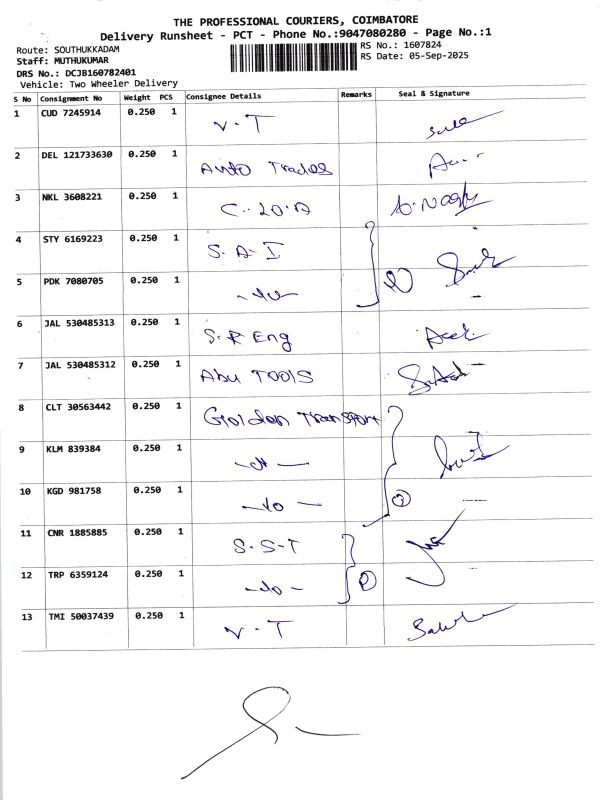 THE PROFESSIONAL COURIERS, COIMBATORE
Delivery Runsheet - PCT - Phone No.:9047080280 - Page No.:1
Route: SOUTHUKKADAM RS No.: 1607824
Staff: MUTHUKUMAR RS Date: 05-Sep-2025
DRS No.: DCJB160782401
Vehicle: Two Wheeler Delivery
S No Consignment No Weight PCS Consignee Details Remarks Seal & Signature
1 CUD 7245914 0.250 1 V-T
2 DEL 121733630 0.250 1 Auto Trades
3 NKL 3608221 0.250 1 C.I.O.A
4 STY 6169223 0.250 1 S.A-I
5 PDK 7080705 0.250 1 -do-
6 JAL 530485313 0.250 1 S.R Eng
7 JAL 530485312 0.250 1 Abu TOOLS
8 CLT 30563442 0.250 1 Golden Transport
9 KLM 839384 0.250 1 -do-
10 KGD 981758 0.250 1 -do-
11 CNR 1885885 0.250 1 S-S-T
12 TRP 6359124 0.250 1 -do-
13 TMI 50037439 0.250 1 V-T